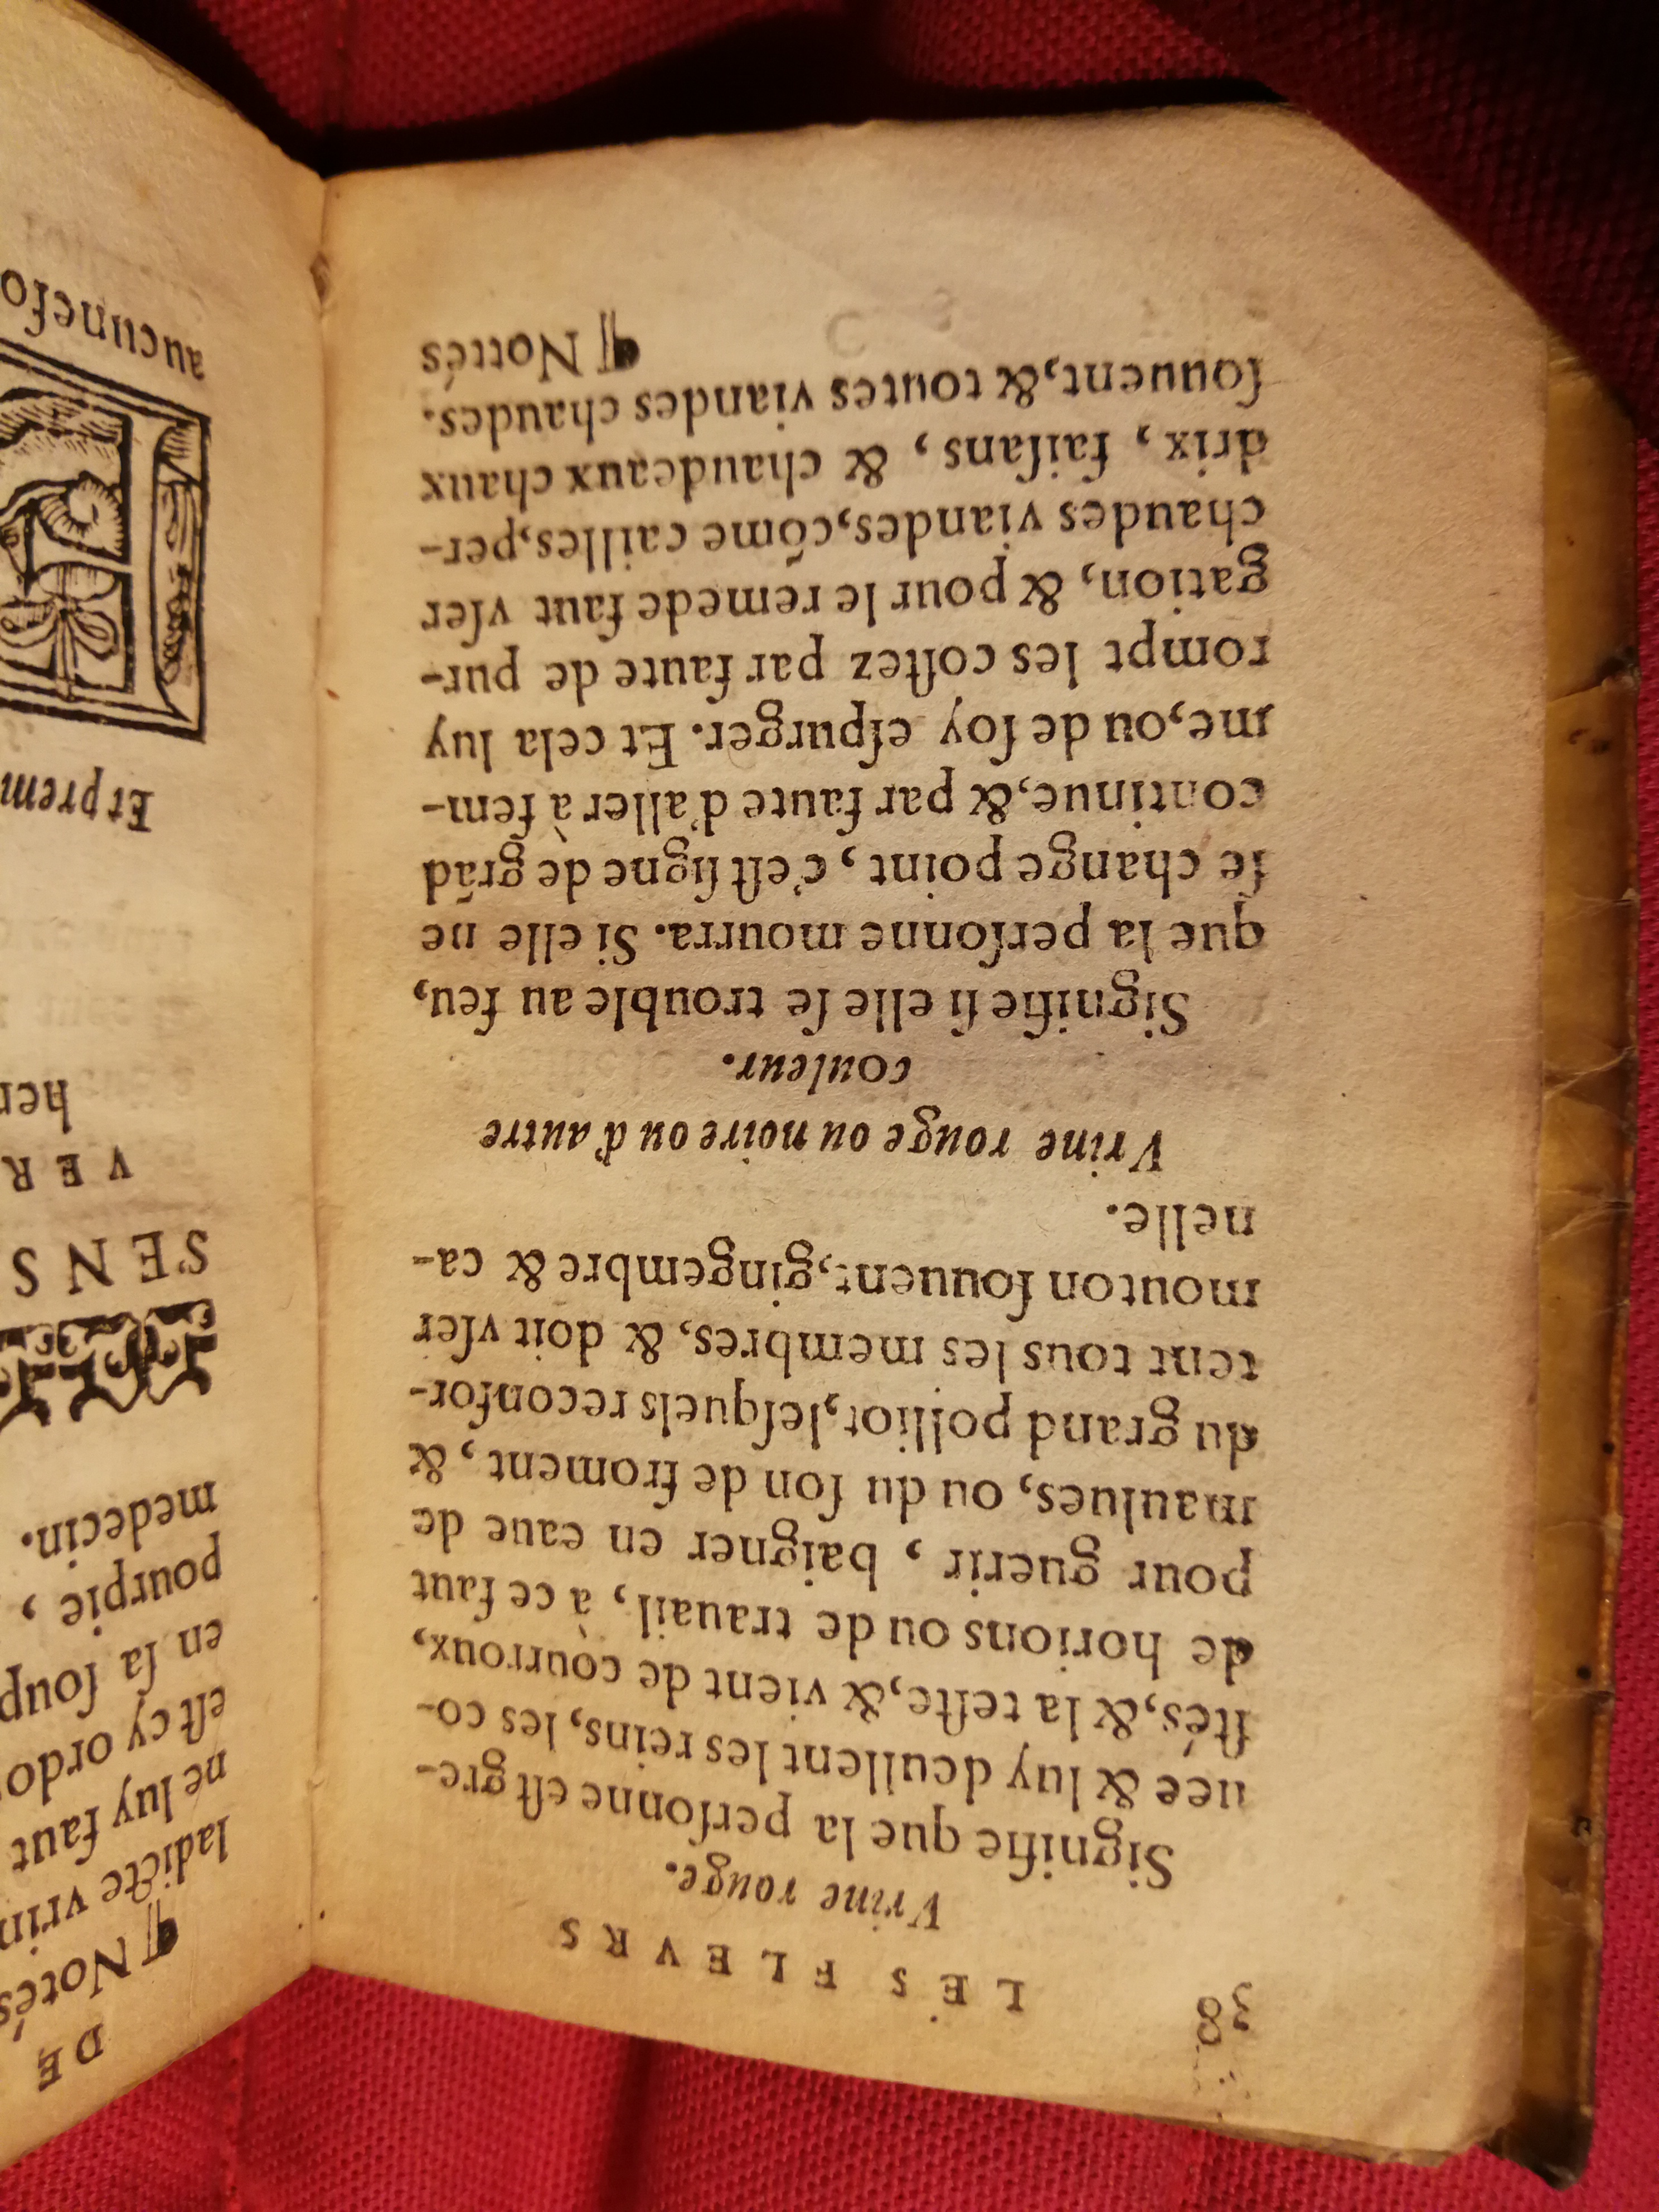 38
LES FLEVRS
Vrine rouge.
Signifie que la perſonne eſt gre-
uee & luy deullent les reins, les co-
ſtés, & la teſte, & vient de courroux,
de horions ou de trauail, à ce faut
pour guerir, baigner en eaue de
maulues, ou du ſon de froment, &
du grand polliot, leſquels reconfor-
tent tous les membres, & doit vſer
mouton ſouuent, gingembre & ca-
nelle.
Vrine rouge ou noire ou d'autre
couleur.
Signifie ſi elle ſe trouble au feu,
que la perſonne mourra. Si elle ne
ſe change point, c'eſt ſigne de grãd
continue, & par faute d'aller à fem-
me, ou de ſoy eſpurger. Et cela luy
rompt les coſtez par faute de pur-
gation, & pour le remede faut vſer
chaudes viandes, cõme cailles, per-
drix, faiſans, & chaudeaux chaux
ſouuent, & toutes viandes chaudes.
¶ Nottés
DE
¶ Notés
ladicte vrin
ne luy faut
eſt cy ordo
en ſa ſoup
pourpie,
medecin.
SENS
VER
her
Et prem
aucunefo